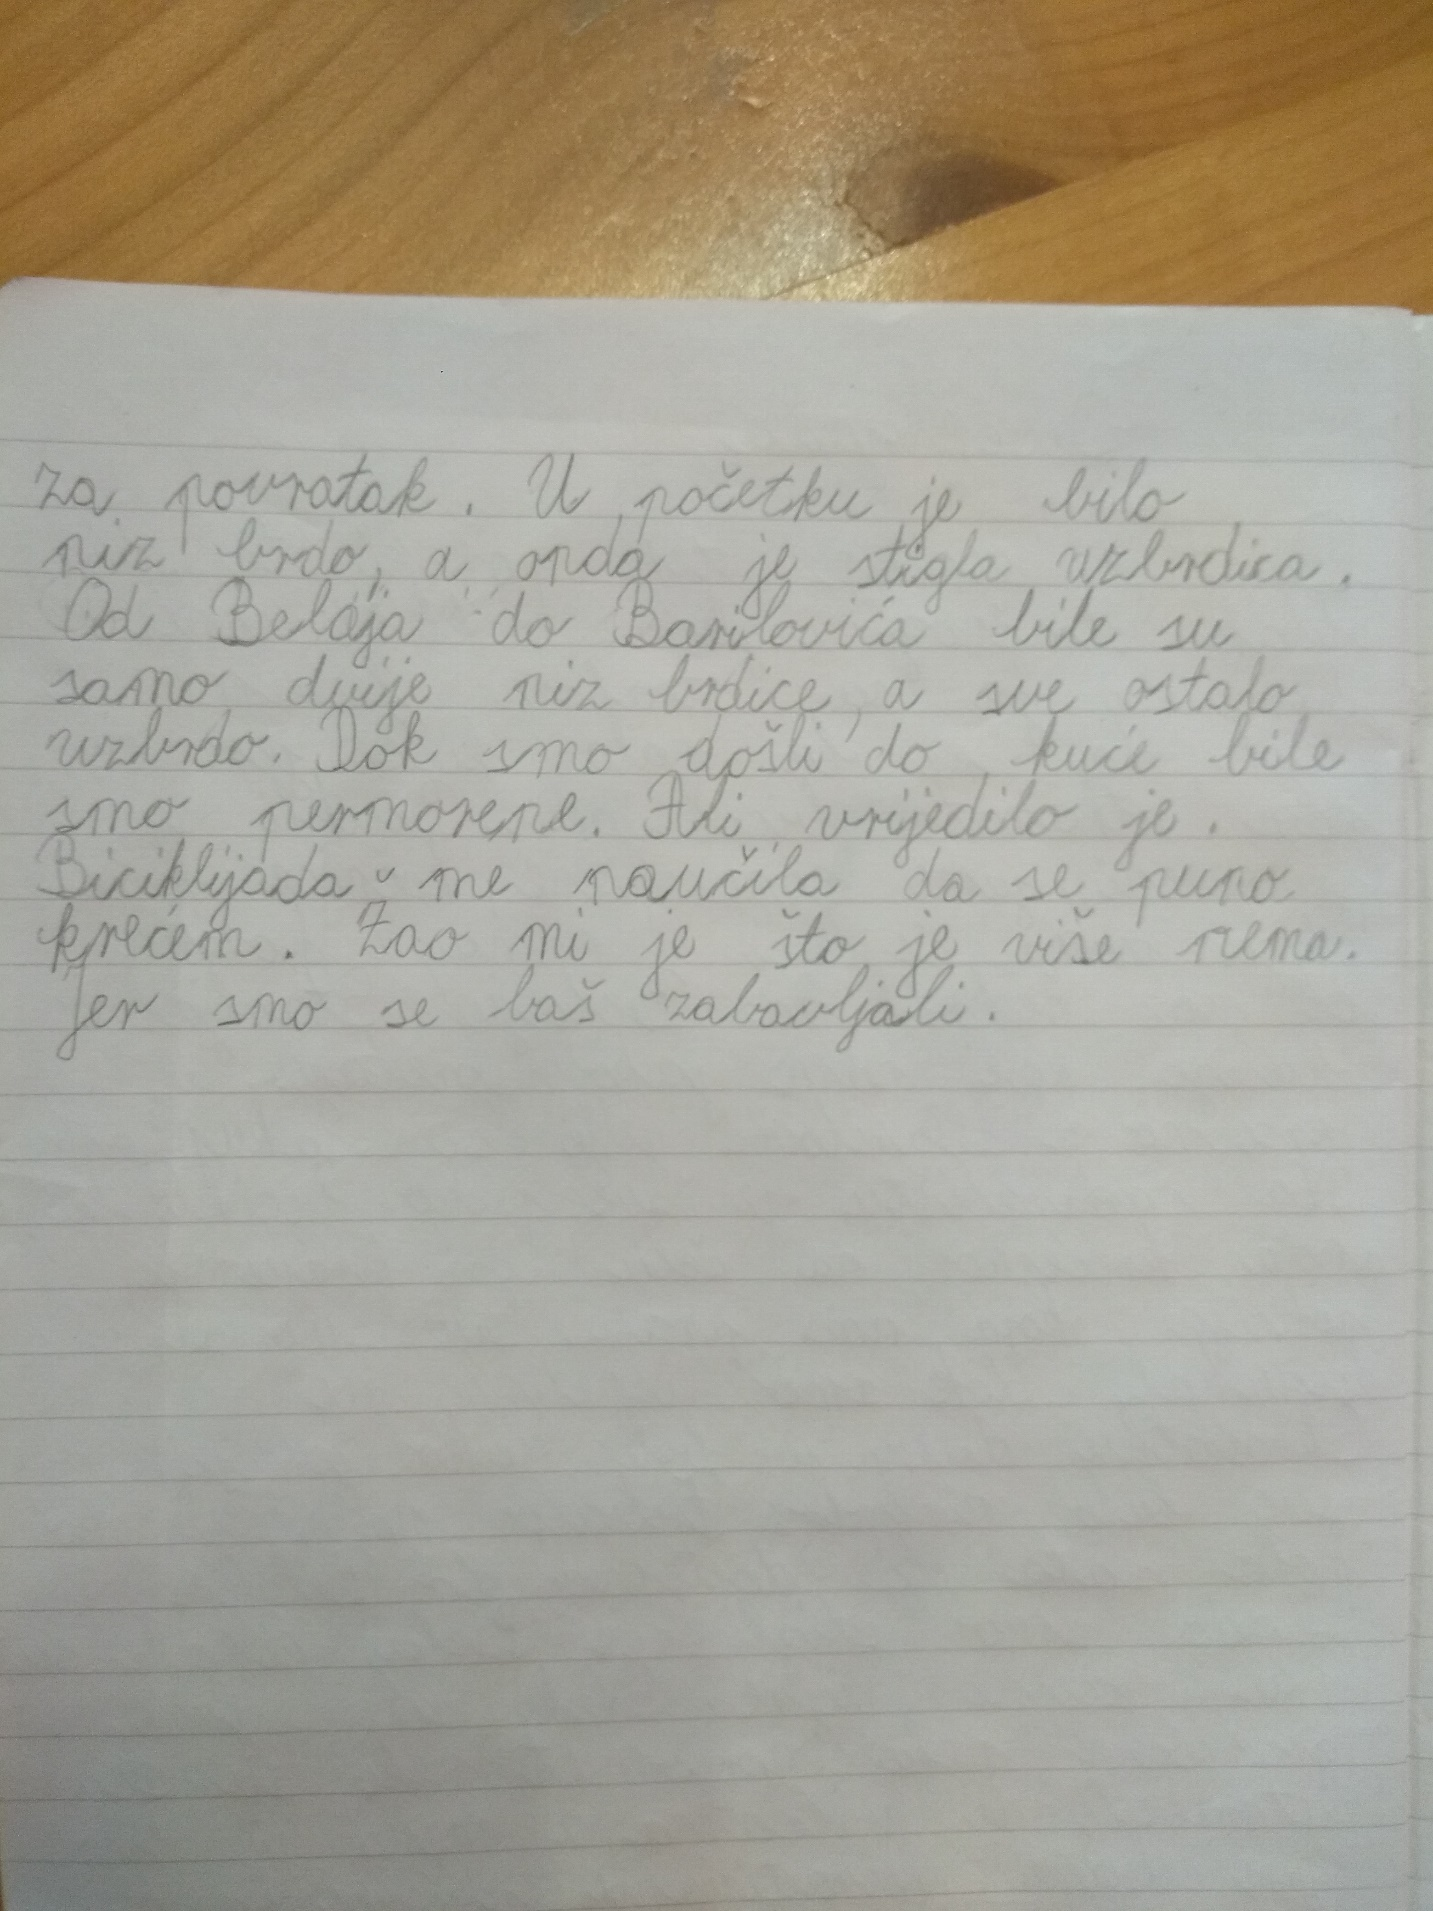 za povratak. U početku je bilo
niz brdo, a onda je stigla uzbrdica.
Od Belaja do Barilovića bile su
samo dvije niz brdice, a sve ostalo
uzbrdo. Dok smo došli do kuće bile
smo permorene. Ali vrijedilo je.
Biciklijada me naučila da se puno
krećem. Žao mi je što je više nema.
Jer smo se baš zabavljali.